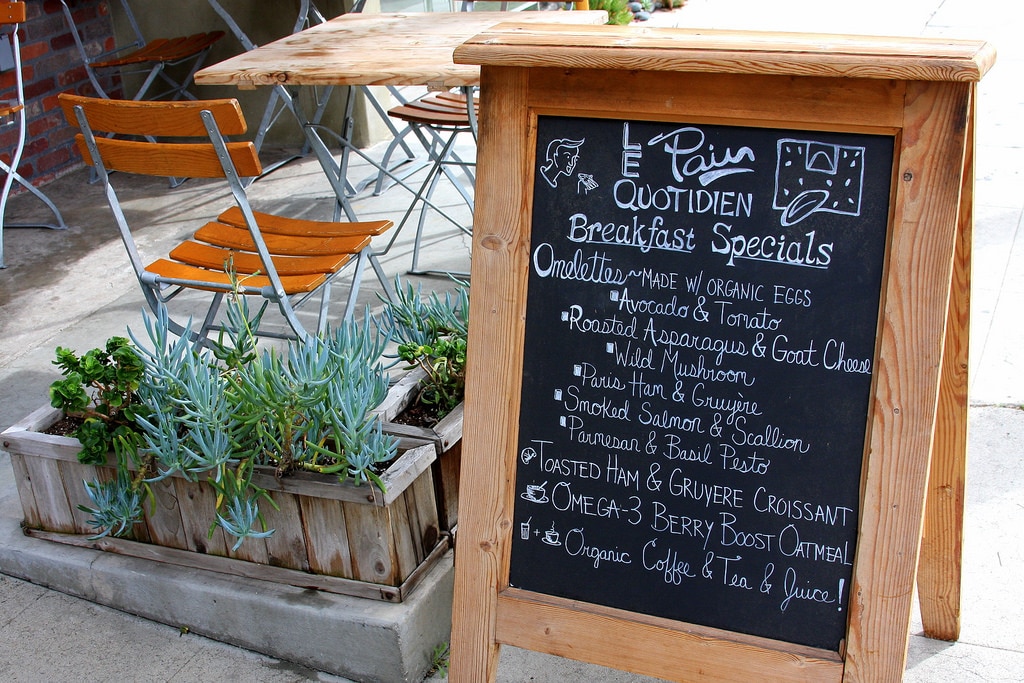 LE Pain
QUOTIDIEN
Breakfast Specials
Omelettes~MADE W/ ORGANIC EGGS
Avocado & Tomato
Roasted Asparagus & Goat Cheese
Wild Mushroom
Paris Ham & Gruyère
Smoked Salmon & Scallion
Parmesan & Basil Pesto
TOASTED HAM & GRUYERE CROISSANT
OMEGA-3 BERRY BOOST OATMEAL
+ Organic Coffee & Tea & Juice!